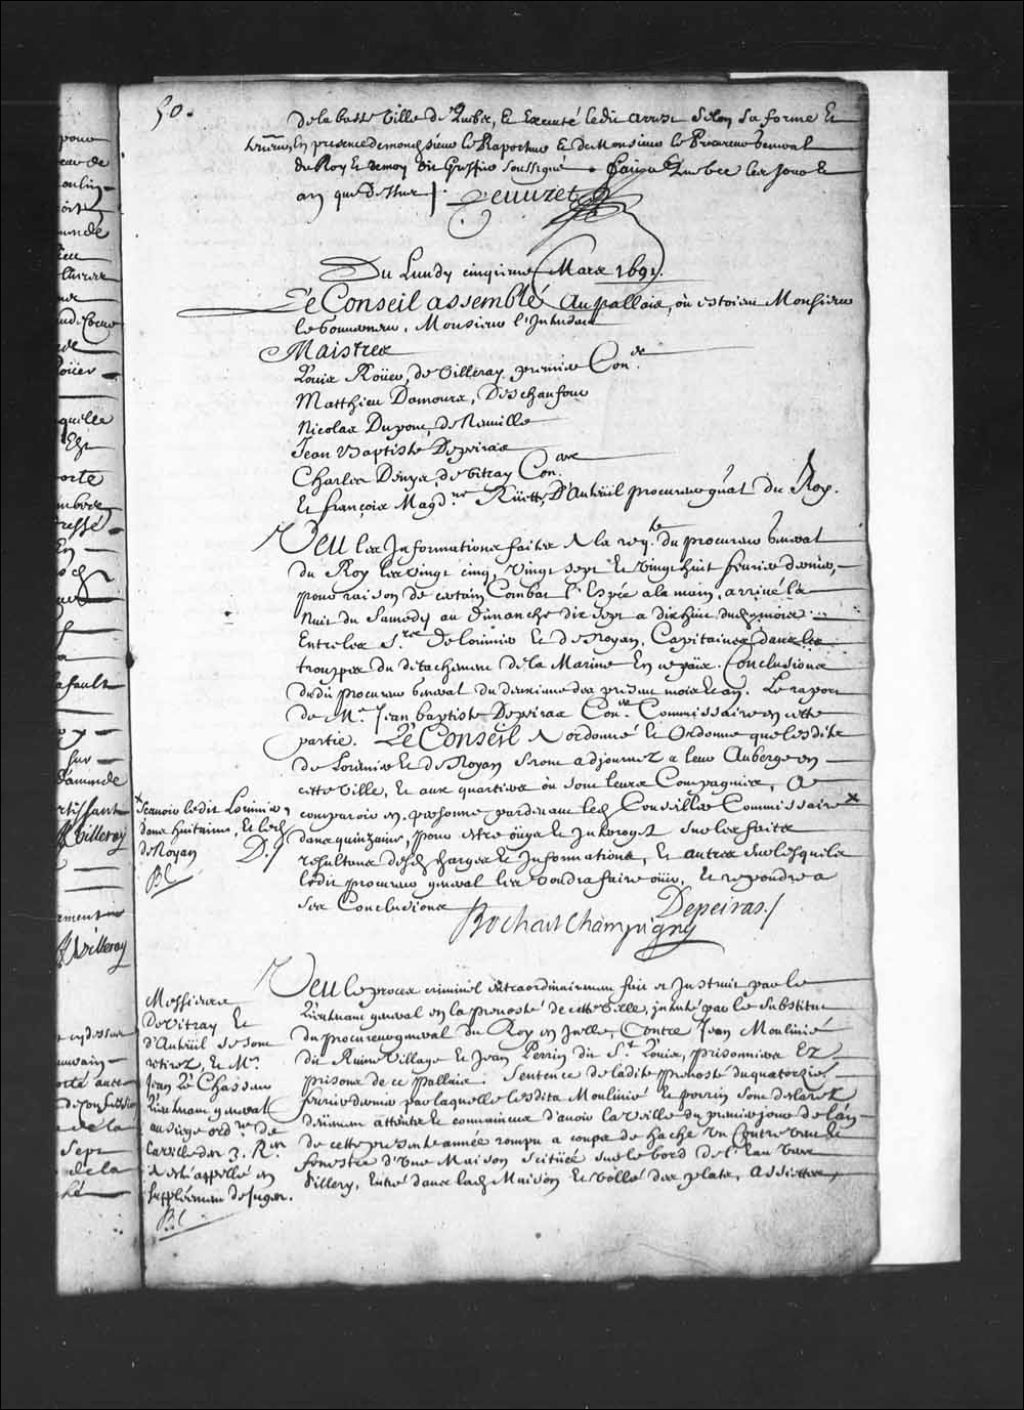 50.
de la basse Ville de Quebec, Et Executé ledit arrest selon sa forme Et
En presence de mondit sieur le Raporteur Et de Monsieur le Procureur General
du Roy Et de moy dit Greffier soussigné. Fait a Quebec les jour Et
an que dessus /.
Peuuret
Du Lundy cinqiéme Mars 1691.
Le Conseil assemblé Au pallais, où estoient Monsieur
le Gouuerneur, Monsieur l'Intendant
Maistres
Louis Roüer, de Villeray premier Con.er
Matthieu Damours, Deschaufour
Nicolas Dupont, de Neuuille
Jean Baptiste Depeiras
Charles Denys, de Vitray Con.ers
Et françois Magd.ne Rüette, D'Auteüil procureur g'nal du Roy.
Veu les Informations faites A la req.te du procureur General
du Roy les vingt cinq, vingt sept Et vingt huit feurier dernier,
pour raison de certain Combat l'Espée a la main, arriué la
nuit du Samedy au dimanche dix sept a dix huit dud. mois
Entre les S.rs de Lorimier Et de Noyan, Capitaines dans les
trouppes du détachement de la Marine En ce païs. Conclusions
dudit procureur General du deuxiéme des present mois Et an. Le raport
de M.e Jean baptiste Depeiras Con.er Commissaire en cette
partie. Le Conseil A ordonné Et Ordonne que lesdits
de Lorimier Et de Noyan seront adjournez a leur Auberge en
cette Ville, Et aux quartiers où sont leurs Compagnies, A
comparoir en personne pardeuant led. Conseiller Commissaire x
dans quinzaine, pour estre oüys Et Interogez sur les faits
resultans desd. charges Et Informations, Et autres sur lesquels
ledit procureur general les voudra faire oüir, Et repondre a
ses Conclusions
x Scauoir ledit Lorimier
dans huitaine, Et led.
de Noyan
D./
BC
Depeiras./
Bochart Champigny
Veu le procez criminel extraordinairement fait et Instruit par le
Lieutenant general en la preuosté de cette Ville, intenté par le Substitut
du procureur general du Roy en Icelle, Contre Jean Moulinié
du Village Et Jean Perrin du S.t Louis, prisonniers Ez
prisons de ce pallais. Sentence de ladite preuosté du quatorzie
feurier dernier par laquelle lesdits Moulinié Et perrin sont declarez
deüement atteints Et conuaincus d'auoir la veille du premier jour de l'an
de cette presente année rompu a coups de hache un Contreuent Et
fenestre d'vne Maison scituée sur le bord de l'Eau vers
Sillery, Entré dans lad. Maison Et vollé des plats, Assiettes,
Messieurs
De Vitray Et
d'Auteüil se sont
retirez, Et M.e
Jean Le Chasseur
Lieutenant general
au siege ord.re de
la ville des 3. R.res
a esté appellé en
supplément de Juges.
BC